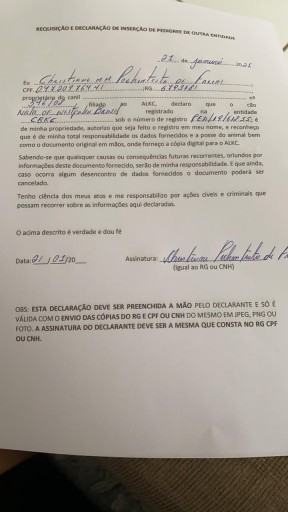 REQUISIÇÃO E DECLARAÇÃO DE INSERÇÃO DE PEDIGREE DE OUTRA ENTIDADE
21 de janeiro 2025
Eu Christiane
CPF RG
proprietário do canil nº
filiado ao ALKC, declaro que o cão
registrado na entidade
CBKC sob o número de registro é
de minha propriedade, autorizo que seja feito o registro em meu nome, e reconheço
que é de minha total responsabilidade os dados fornecidos e a posse do animal bem
como o documento original em mãos, onde forneço a cópia digital para o ALKC.
Sabendo-se que quaisquer causas ou consequências futuras recorrentes, oriundos por
informações deste documento fornecido, serão de minha responsabilidade. E que ainda,
caso ocorra algum desencontro de dados fornecidos o documento poderá ser
cancelado.
Tenho ciência dos meus atos e me responsabilizo por ações civeis e criminais que
possam recorrer sobre as informações aqui declaradas.
O acima descrito é verdade e dou fé
Data: 21 / 01 /20 Assinatura:
(igual ao RG ou CNH)
OBS: ESTA DECLARAÇÃO DEVE SER PREENCHIDA A MÃO PELO DECLARANTE E SÓ É
VÁLIDA COM O ENVIO DAS CÓPIAS DO RG E CPF OU CNH DO MESMO EM JPEG, PNG OU
FOTO. A ASSINATURA DO DECLARANTE DEVE SER A MESMA QUE CONSTA NO RG CPF
OU CNH.